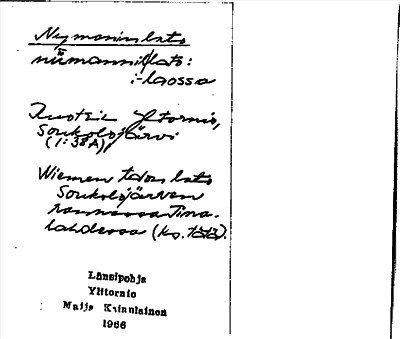 Nymaninlato
niimanniłato:
i-laossa
Ruotsin Ylitornio,
Soukolojärvi
(1:38A)
Niemen talon lato
Soukolojärven
rannassa Tina-
lahdessa (ks. tätä).
Länsipohja
Ylitornio
Maija Kainulainen
1966